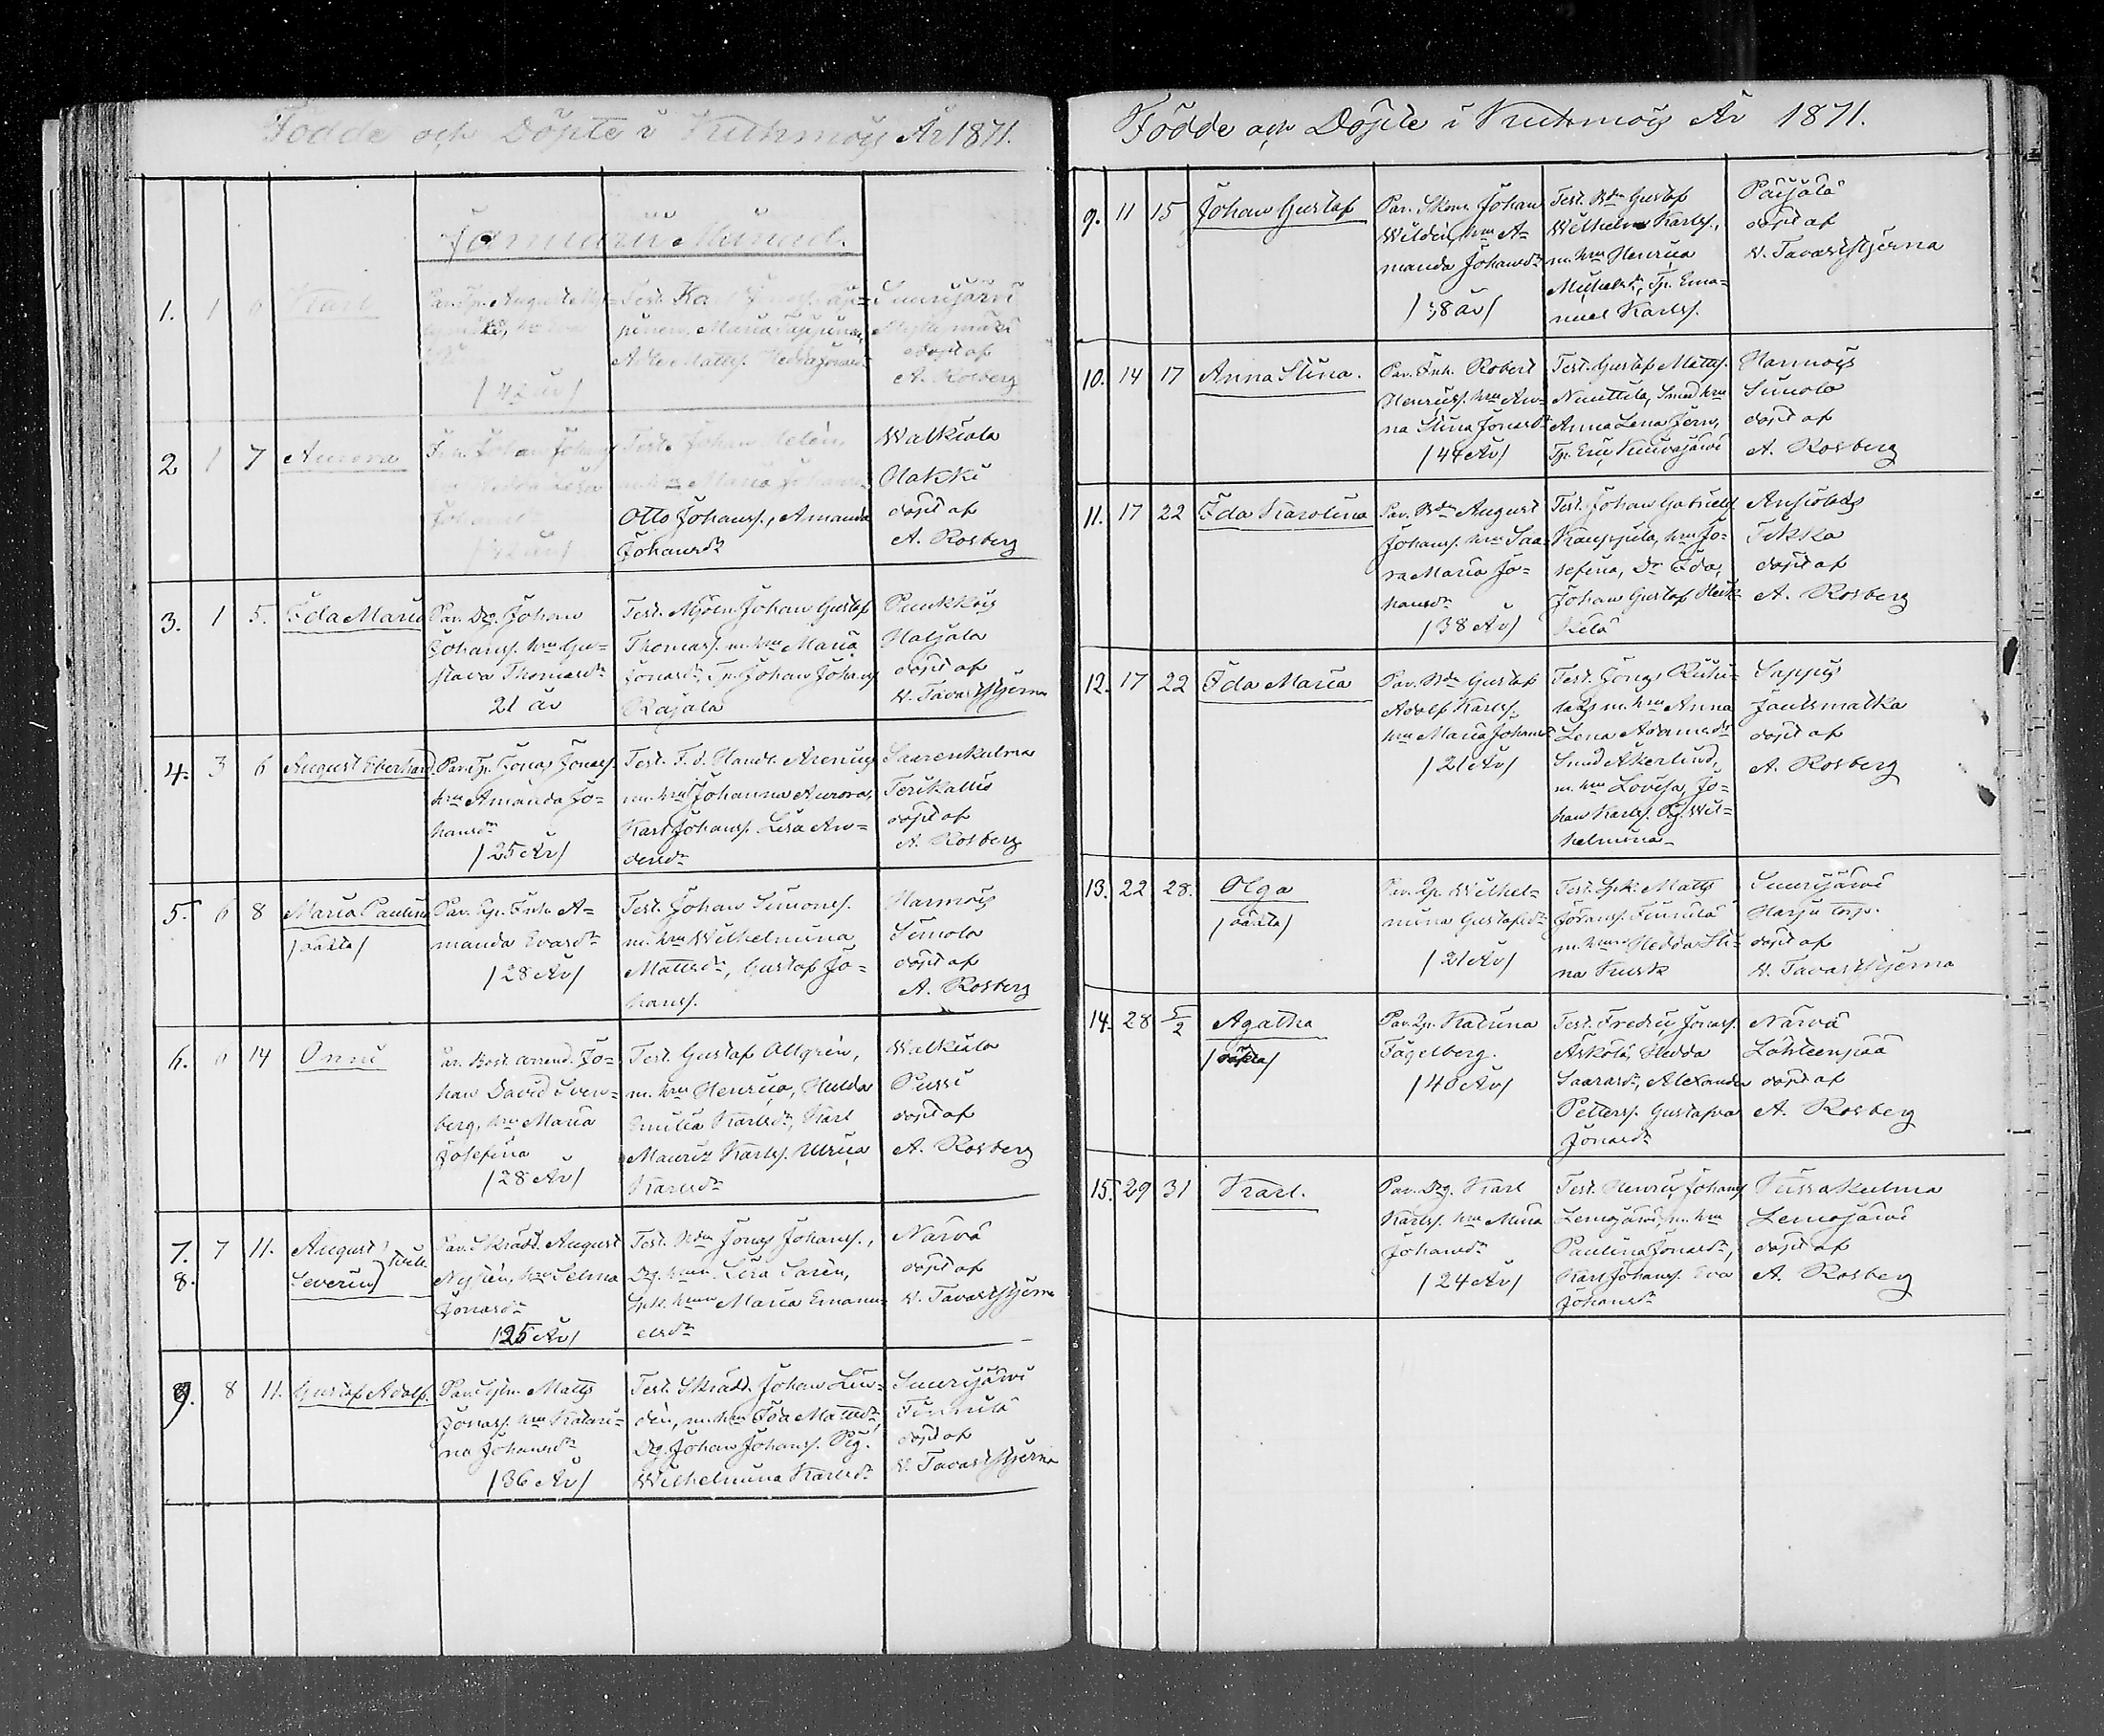 Födde och Döpte i Kuhmois År 1871.
Januarii Månad.
1. 1 6 Karl
Par. Tp. August
/42 år/
Test. Karl
pinen, Maria
Matts. Hedda Jonasd:r
Suurijärvi
Myllymäki
döpt af
A. Rosberg
2 1 7 Aurora
Inh. Johan Johans.
Hedda Lisa
Johansd:r
Test. Johan Helén
m. hru Maria Johansd:r
Otto Johans., Amanda
Johansd:r
Walkiala
Hakki
döpt af
A. Rosberg
3. 1 5. Ida Maria
Par. Dg. Johan
Johans. hru Gu=
stava Thomasd:r
21 år
Test. Mjöln. Johan Gustaf
Thomass. m. hru Maria
Jonasd:r Tp. Johan Johans.
Rajala
Puukkois
Haljala
döpt af
W. Tavaststjerna
4. 3 6 August Eberhard
Par. Tp. Jonas Jonass.
hru Amanda Jo=
hansd:r
/25 År/
Test. F. d. Handl. Arenius
m. hru Johanna Aurora,
Karl Johans. Lisa An=
dersd:r
Saarenkulma
Terikallio
döpt af
A. Rosberg
5. 6 8 Maria Paulina
/oäkta/
Par. Qp. Inh. A=
manda Evasd:r
/28 År/
Test. Johan Simons.
m. hru Wilhelmina
Mattsd:r, Gustaf Jo=
hans.
Harmois
Simola
döpt af
A. Rosberg
6. 6 14 Onni
Par. Bost. arrend. Jo=
han David Sven=
berg, hru Maria
Josefina
/28 År/
Test. Gustaf Allgrén,
m. hru Henrica, Hulda
Emilia Karlsd:r, Karl
Mauritz Karls. Ulrica
Karlsd:r
Walkiala
Pussi
döpt af
A. Rosberg
7. 7 11. August
8. Severin
Par. Skrädd. August
Nyrén, hru Selma
Jonasd:r
/25 År/
Test. Bdn Jonas Johans.,
Dg. hru Lisa Sarén,
Inh. hru Maria Emanu=
elsd:r
Närvä
döpt af
W. Tavaststjerna
9. 8 11. Gustaf Adolf.
Par. Matts
Jonass. hru Katari=
na Johansd:r
/36 År/
Test. Skrädd. Johan Lin=
dén, m. hru Ida Mattsd:r,
Dg. Johan Johans. Pig.
Wilhelmina Karlsd:r
Suurijärvi
Finnilä
döpt af
W. Tavaststjerna
Födde och Döpte i Kuhmois År 1871.
9. 11 15 Johan Gustaf
Par. Skom. Johan
Wildén, hru A=
manda Johansd:r
/38 år/
Test. Bdn Gustaf
Wilhelm Karls.,
m. hru Henrica
Michelsd:r, Tp. Ema=
nuel Karls.
Päijälä
döpt af
W. Tavaststjerna
10. 14 17 Anna Stina.
Par. Inh. Robert
Henrics. hru An=
na Stina Jonasd:r
/44 År/
Test. Gustaf Matts.
Nuuttila, Smed hru
Anna Lena Jern,
Tp. Eric Kuivajärvi
Harmois
Simola
döpt af
A. Rosberg
11. 17 22 Ida Karolina
Par. Bdn August
Johans. hru Saa=
ra Maria Jo=
hansd:r
/38 År/
Test. Johan Gabriels.
Kauppila, hru Jo=
sefina, Dr Eda,
Johan Gustaf Heik=
kilä
Ansiolaks
Tikka
döpt af
A. Rosberg
12. 17 22 Ida Maria
Par. Bdn Gustaf
Adolf Karls.
hru Maria Johansd:r
/21 År/
Test. Jonas Riihi=
laks m. hru Anna
Lena Adamsd:r
Smed Åkerlund,
m. hru Lovisa, Jo=
han Karls. Pig. Wil=
helmina
Sappis
Jautsmatka
döpt af
A. Rosberg
13. 22 28. Olga
/oäkta/
Par. Qp. Wilhel=
mina Gustafsd:r
/21 År/
Test. Matts
Johans. Finnilä
m. hru Hedda Sti=
na Kusk
Suurijärvi
Harju torp.
döpt af
W. Tavaststjerna
14. 28 5/2 Agatha
/oäkta/
Par. Qp. Katrina
Fagelberg.
/40 År/
Test. Fredric Jonass.
Äskölä, Hedda
Saarasd:r, Alexander
Petters. Gustafva
Jonasd:r
Närvä
Lähteenpää
döpt af
A. Rosberg
15. 29 31 Karl.
Par. Dg. Karl
Karls. hru Mina
Johansd:r
/24 År/
Test. Henric Johans.
Lemojärvi, m. hru
Paulina Jonasd:r,
Karl Johans. Eva
Johansd:r
Pussakulma
Lemojärvi
döpt af
A. Rosberg